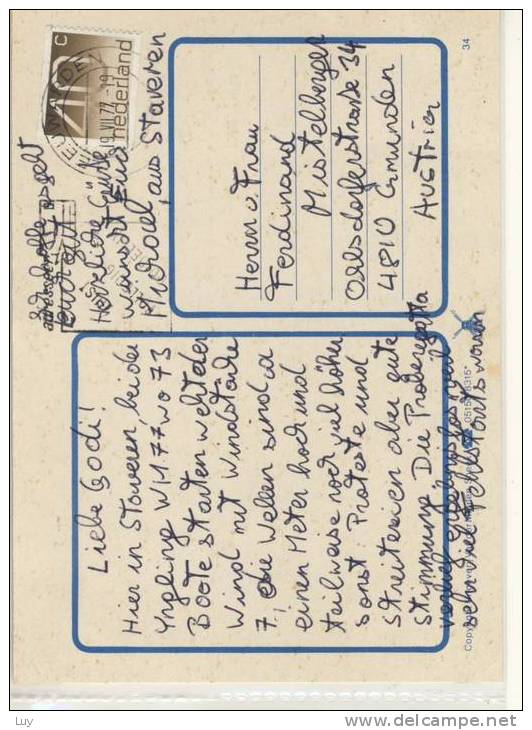 Liebe Godi!
Hier in Staveren, bei der
Yngling WM 77 wo 73
Boote starten weht der
Wind mit Windstärke
7, die Wellen sind ca
einen Meter hoch und
teilweise noch viel höher
sonst Proteste und
Streitereien aber gute
Stimmung Die Proberegatta
verlief
sehr viel Frühstarts waren
Herzliche Grüße
Euer
Michael, aus Staveren
Herrn o Frau
Ferdinand
Mistelberger
Orlsdorferstrasse 34
4810 Gmunden
AUSTRIEN
nederland
40 c
19.VII.77.-19
34
Copyright
Luy
www.delcampe.net